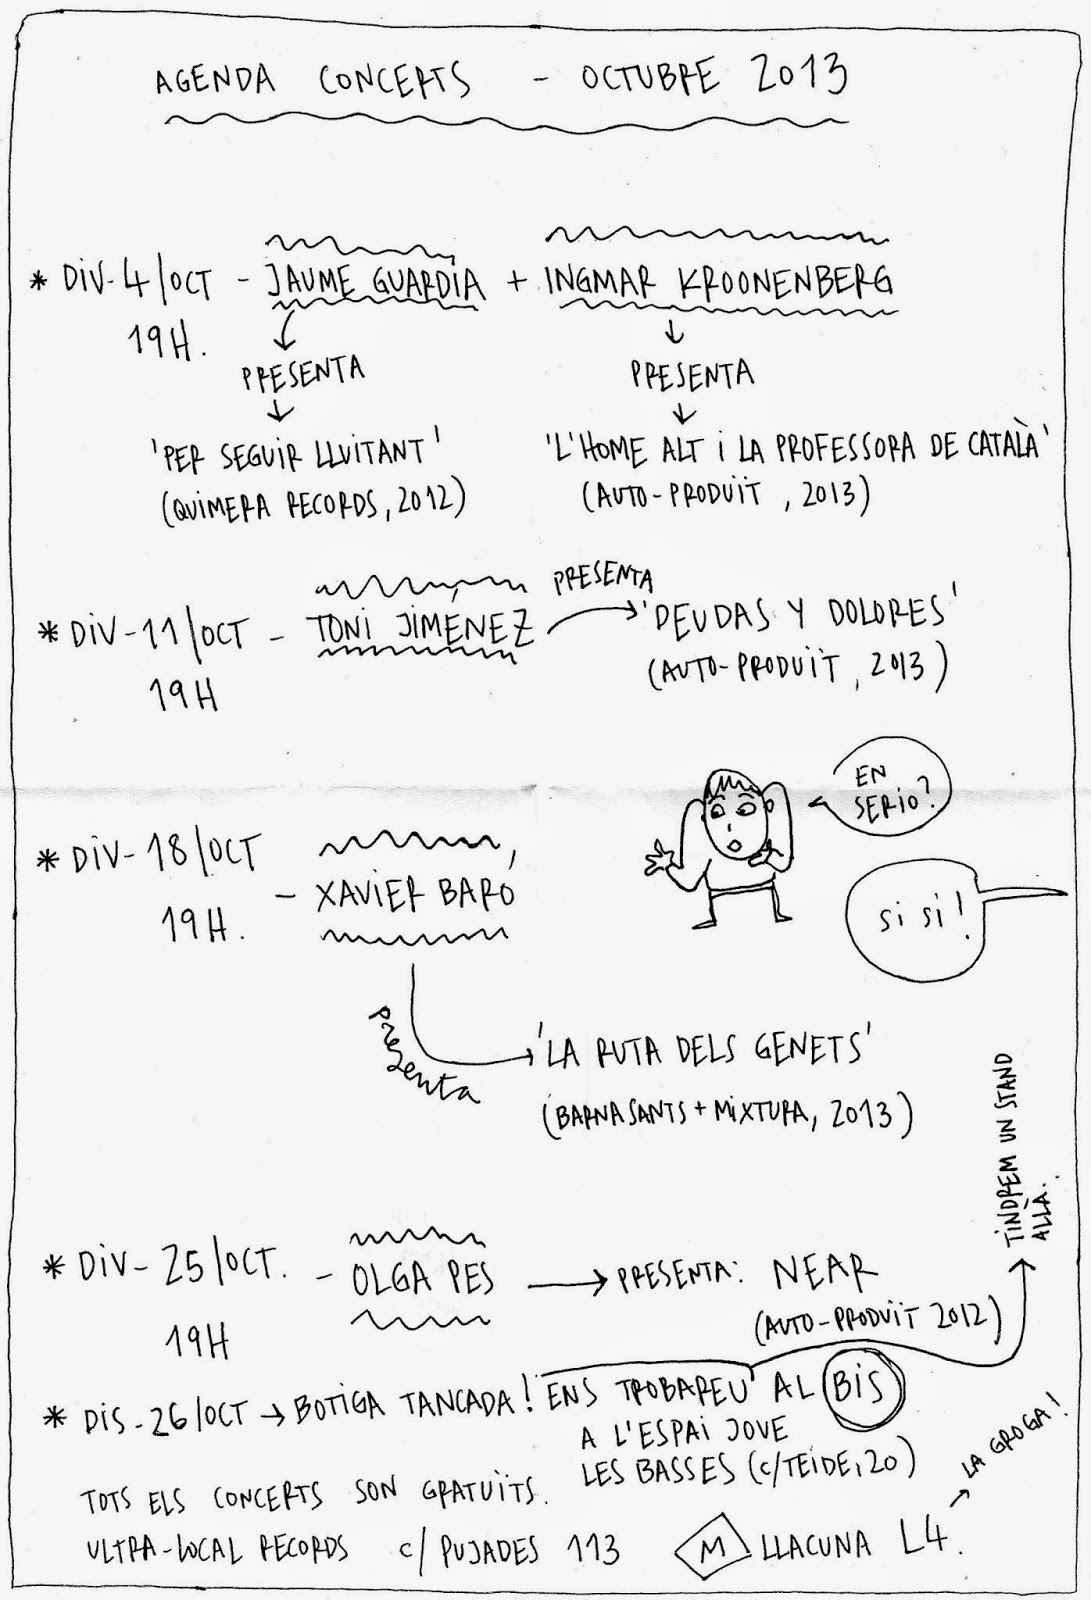 AGENDA CONCERTS - OCTUBRE 2013
* DIV-4/OCT - JAUME GUARDIA + INGMAR KROONENBERG
19H.
PRESENTA PRESENTA
'PER SEGUIR LLUITANT' 'L'HOME ALT I LA PROFESSORA DE CATALÀ'
(QUIMERA RECORDS, 2012) (AUTO-PRODUÏT, 2013)
* DIV-11/OCT - TONI JIMÉNEZ PRESENTA 'DEUDAS Y DOLORES'
19H (AUTO-PRODUÏT, 2013)
EN
SERIO?
* DIV-18/OCT - XAVIER BARÓ
19H.
SI SI!
PRESENTA
'LA RUTA DELS GENETS'
(BARNASANTS + MIXTURA, 2013)
* DIV-25/OCT. - OLGA PES PRESENTA: NEAR
19H (AUTO-PRODUÏT 2012)
* DIS-26/OCT → BOTIGA TANCADA! ENS TROBAREU AL BIS
A L'ESPAI JOVE
LES BASSES (C/TEIDE, 20)
TINDREM UN STAND
ALLÀ..
TOTS ELS CONCERTS SON GRATUÏTS.
ULTRA-LOCAL RECORDS C/ PUJADES 113 M LLACUNA L4.
LA GROGA!